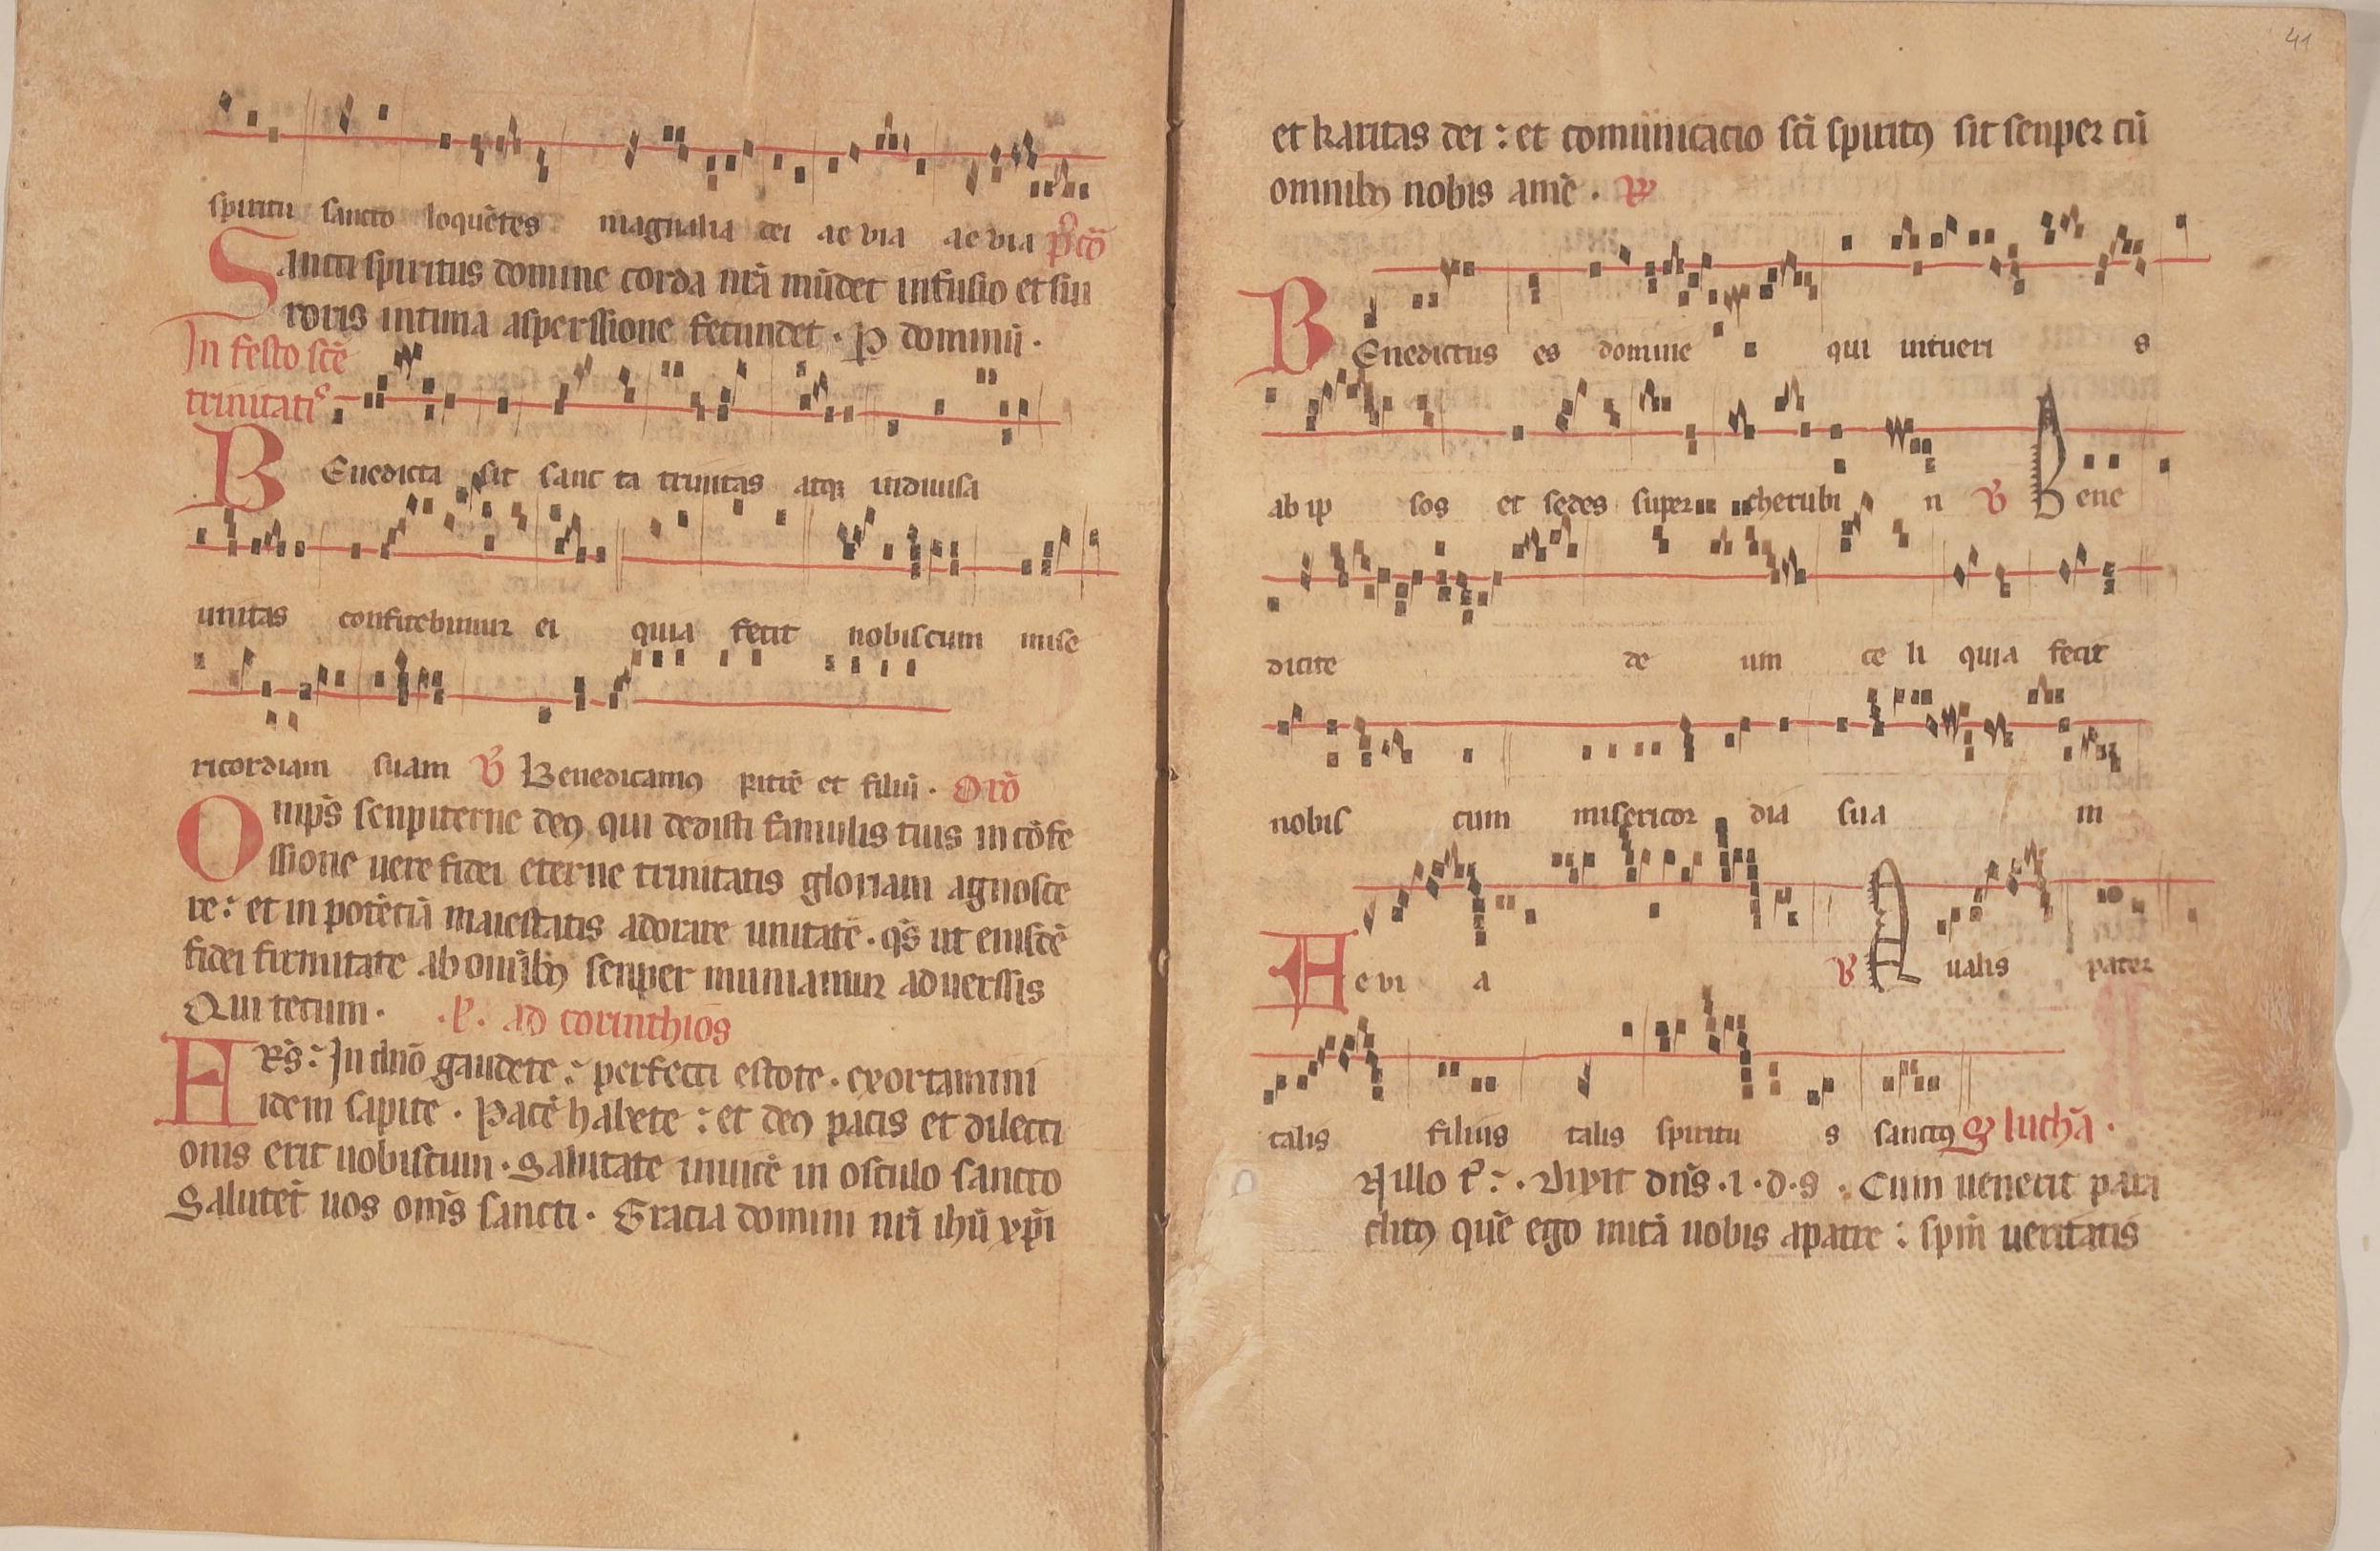 spiritu sancto loquētes magnalia dei ae via ae via p̄ co̅
Sancti spiritus domine corda nr̄a mūdet infusio et sui
roris intima asperssione fecundet · P dominū ·
In festo scē
trinitatis
BEnedicta sit sanc ta trinitas atqꝫ indiuisa
unitas confitebimur ei quia fecit nobiscum mise
ricordiam suam V̄ Benedicamꝰ patrē et filiū · Orō
Omp̄s senpiterne deꝰ qui dedisti famulis tuis in cōfe
ssione uere fidei eterne trinitatis gloriam agnosce
re : et in potēcia maiestatis adorare unitatē · qs̄ ut eiusdē
fidei firmitate ab omībꝰ senper muniamur aduerssis
Qui tecum · · l · ad corinthios
Frs̄ : In dn̄o gaudete : perfecti estote · exortamini
idem sapite · Pacē habete : et deꝰ pacis et dilecti
onis erit uobiscum · Salutate inuicē in osculo sancto
Salutēt uos om̄s sancti · Gracia domini nr̄i ihū xp̄i
41
et karitas dei : et comūnicacio sc̄i spiritꝰ sit senper cū
omnibꝰ nobis amē ·
BEnedictus es domine qui intueri s
ab ip sos et sedes super cherubi n V̄ Bene
dicite de um ce li quia fecit
nobis cum misericor dia sua m
Ae vi a V̄ Qualis pater
talis filius talis spiritu s sanctꝰ luchā ·
N illo t̄ : · Dixit dn̄s · i · d · s · Cum uenerit para
clitꝰ quē ego mitā uobis apatre : spm̄ ueritatis